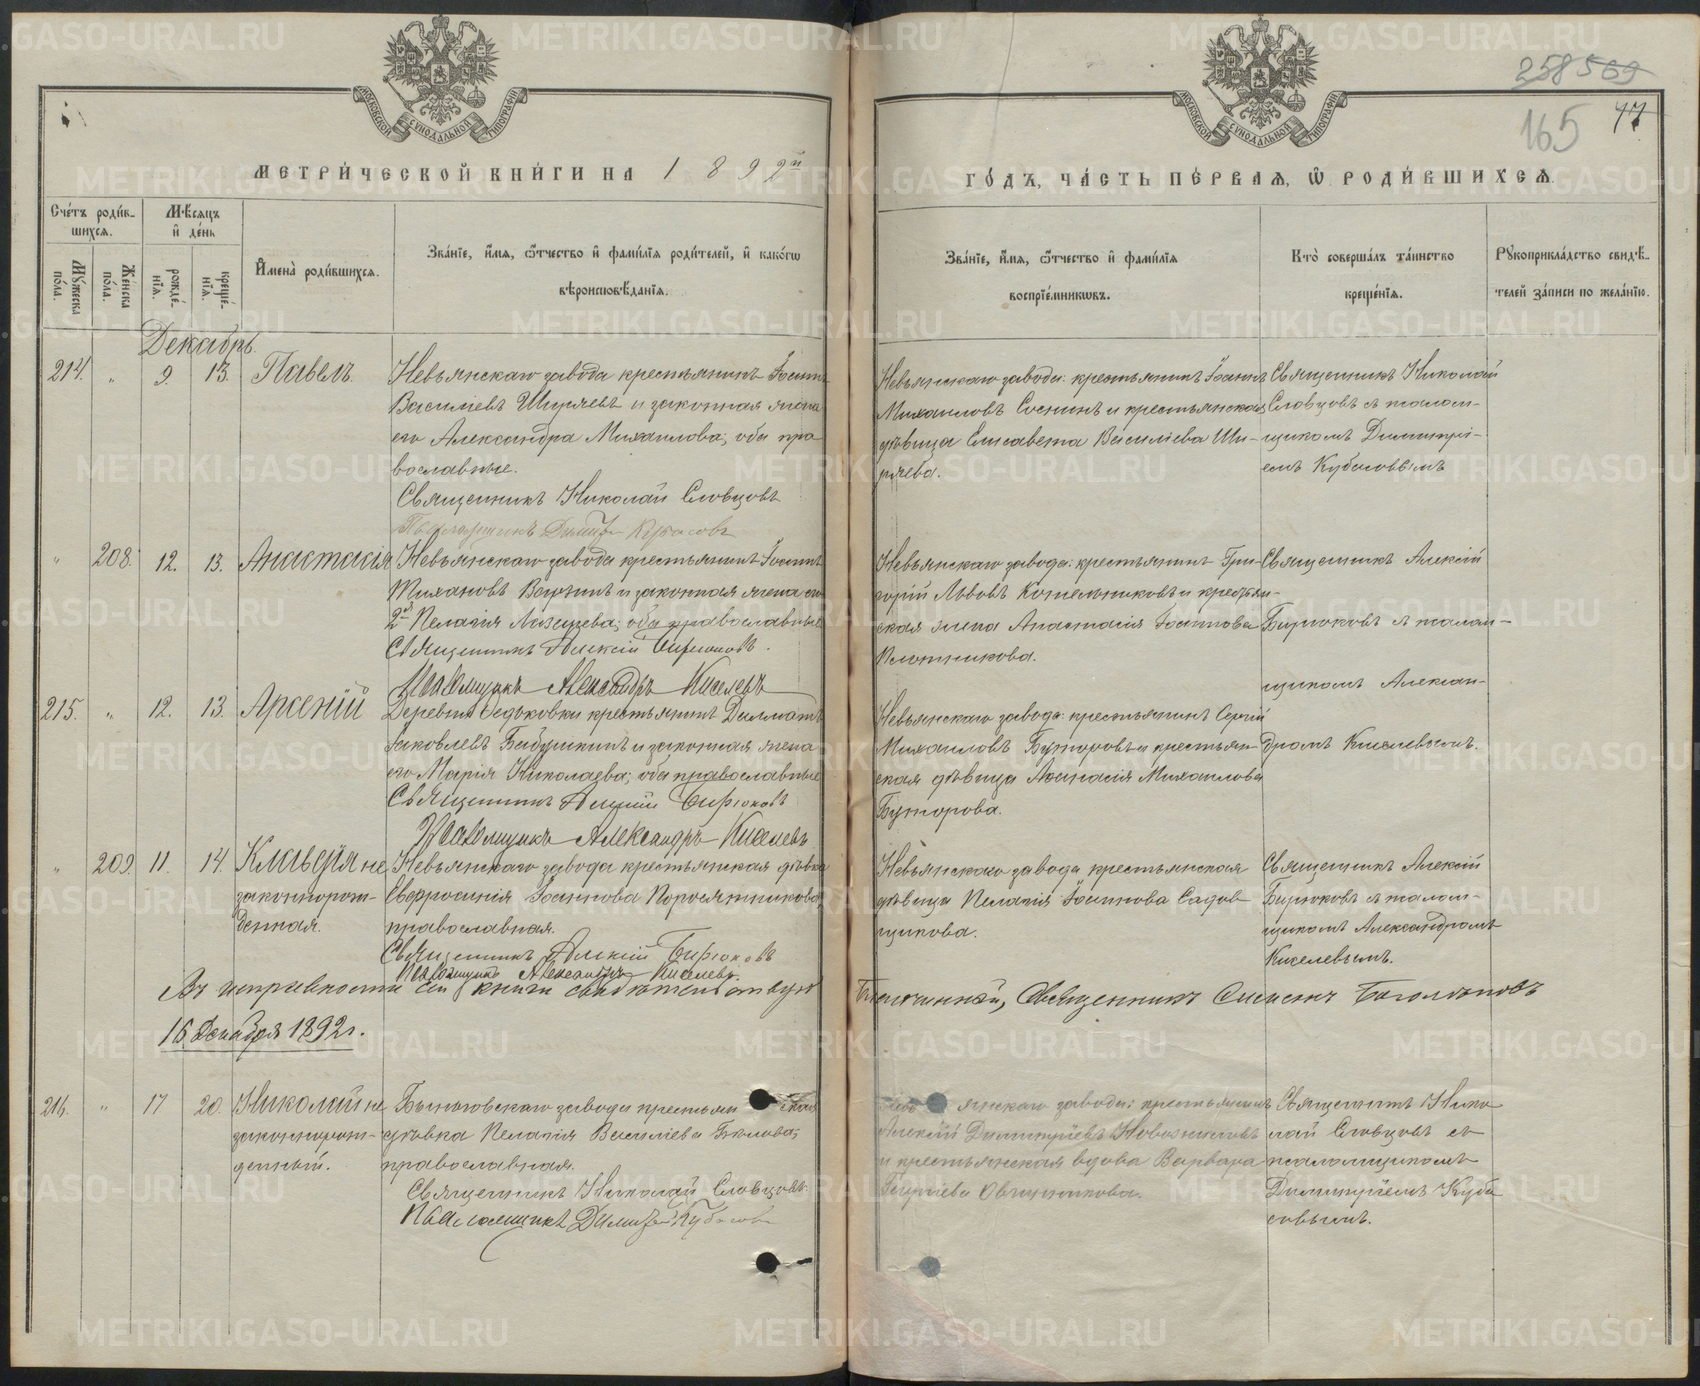 258 569
165 77
МЕТРИ́ЧЕСКОЙ КНИ́ГИ НА 1892й
ГО́ДЪ, ЧА́СТЬ ПЕ́РВАЯ, Ѡ РОДИ́ВШИХСЯ.
Сче́тъ роди́в-
шихся.
Мѣ́сяцъ
и҆ де́нь
И҆мена̀ роди́вшихся.
Зва́нїе, и҆́мя, ѻ҆́тчество и҆ фами́лїѧ роди́телей, и҆ како́гѡ
вѣроисповѣ́данїѧ.
Му́жеска по́ла.
Же́нска по́ла.
рожде́нїѧ.
креще́нїѧ.
Зва́нїе, и҆́мя, ѻ҆́тчество и҆ фами́лїѧ
воспрїе́мникѡвъ.
Кто̀ соверша́лъ та́инство
креще́нїѧ.
Рукоприкла́дство свидѣ́-
телей за́писи по жела́нїю.
Декабрь.
214. " 9. 13. Павелъ
Невьянскаго завода крестьянинъ Іоаннъ
Василіевъ Ширяевъ и законная жена
его Александра Михаилова, оба пра
вославные.
Священникъ Николай Словцовъ
Псаломщикъ Димитр Кубасовъ
Невьянскаго завода: крестьянинъ Іоаннъ
Михаиловъ Соснинъ и крестьянская
дѣвица Елисавета Василіева Ши-
ряева.
Священникъ Николай
Словцовъ съ псалом-
щикомъ Димитрі-
емъ Кубасовымъ
" 208. 12. 13. Анастасія
Невьянскаго завода крестьянинъ Іоаннъ
и законная жена его
2я Пелагія оба православные
Священникъ Алексій Бирюковъ.
Псаломщикъ Александръ Киселевъ
Невьянскаго завода: крестьянинъ Гри-
горій Львовъ Котельниковъ и крестьян-
ская жена Анастасія Іоаннова
Плотникова.
Священникъ Алексій
Бирюковъ съ псалом-
щикомъ Алексан-
дромъ Киселевымъ.
215. " 12. 13. Арсеній
Деревни Федьковки крестьянинъ Далматъ
Іаковлевъ Бабушкинъ и законная жена
его Марія Николаева; оба православные
Священникъ Алексій Бирюковъ
Псаломщикъ Александръ Киселевъ
Невьянскаго завода: крестьянинъ Сергій
Михаиловъ Буторовъ и крестьян-
ская дѣвица Михаилова
Буторова.
" 209. 11. 14. Клавдія не
законнорож-
денная.
Невьянскаго завода крестьянская дѣвка
Евфросинія Іоаннова Поросятникова,
православная.
Священникъ Алексій Бирюковъ
Псаломщикъ Александръ Киселевъ.
Невьянскаго завода крестьянская
дѣвица Пелагія Іоаннова Садов-
щикова.
Священникъ Алексій
Бирюковъ съ псалом-
щикомъ Александромъ
Киселевымъ.
Въ исправности сей книги свидѣтельствую Благочинный, Священникъ Симеонъ Боголюбовъ
16 Декабря 1892 г.
216. " 17 20. Николай не
законнорож-
денный.
Быньговскаго завода крестьянская
дѣвка Пелагія Василіева Бѣлова;
православная.
Священникъ Николай Словцовъ
Псаломщикъ Димитрій Кубасовъ
Невьянскаго завода: крестьянинъ
Алексій Димитріевъ
и крестьянская вдова Варвара
Овчинникова.
Священникъ Нико-
лай Словцовъ съ
псаломщикомъ
Димитріемъ Куба
совымъ.